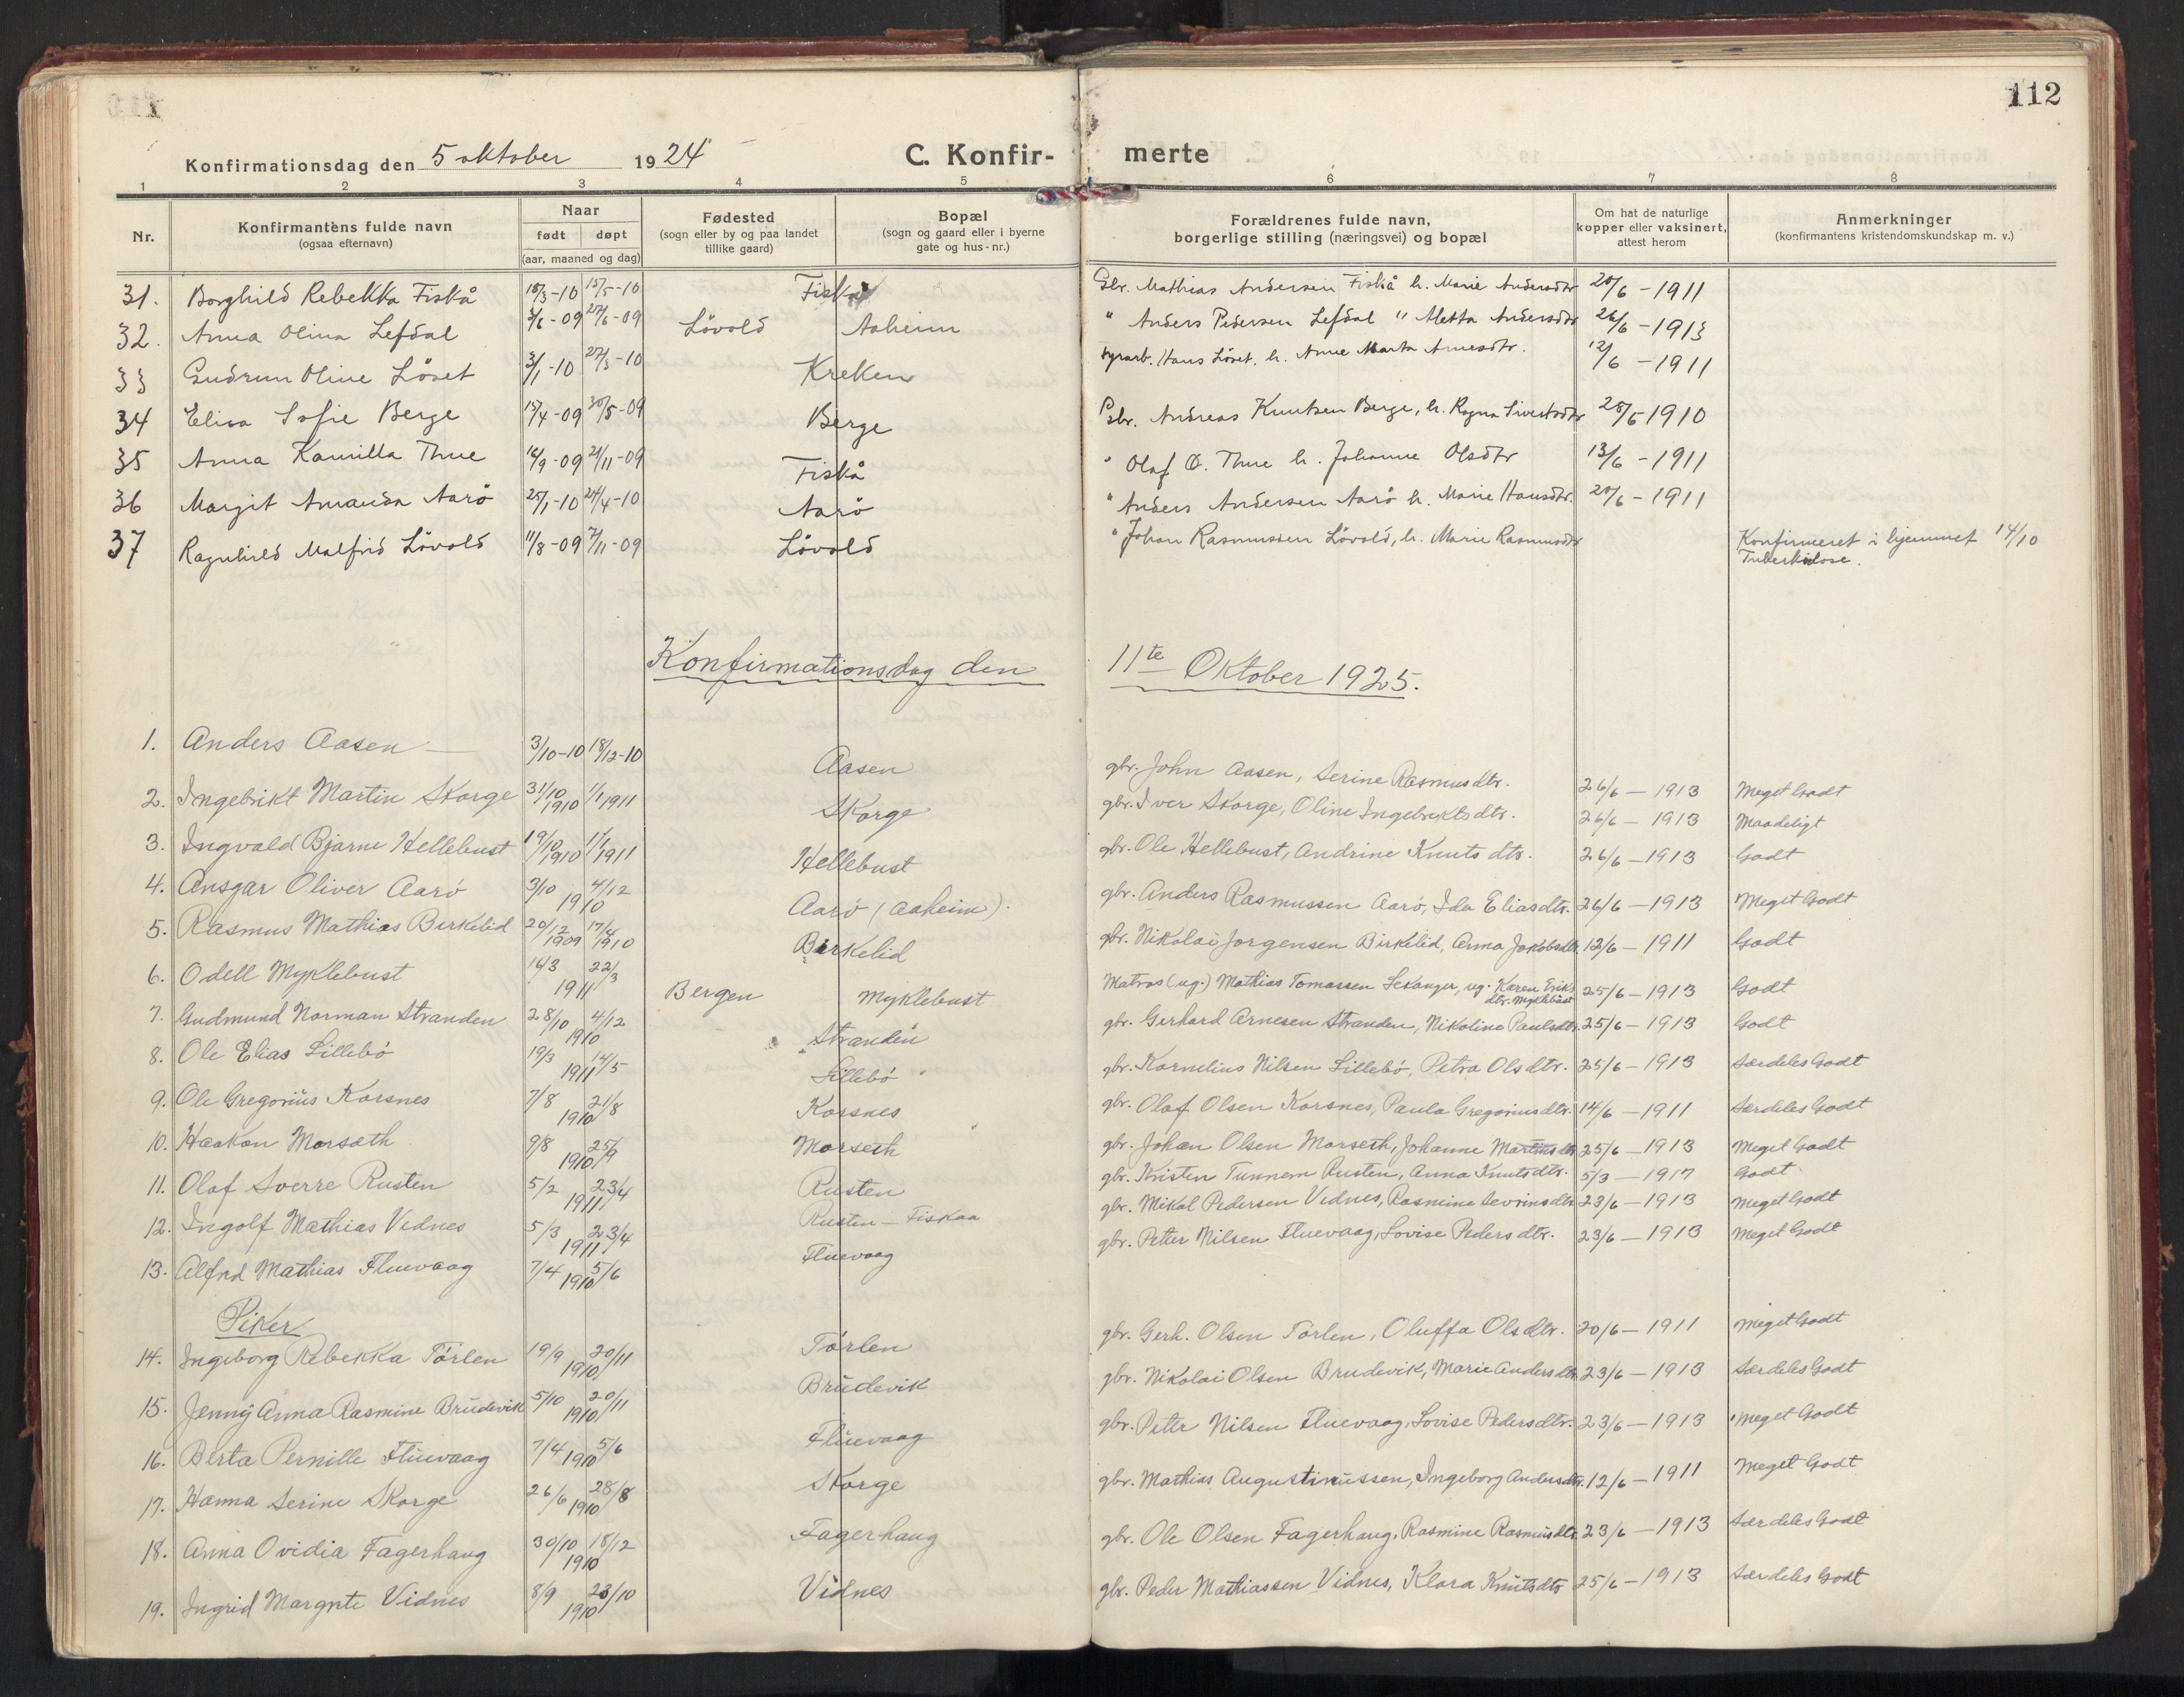 112
Konfirmationsdag den 5 oktober 1924 C. Konfir- merte
1 2 3 4 5 6 7 8
Nr. Konfirmantens fulde navn (ogsaa efternavn) Naar født døpt (aar, maaned og dag) Fødested (sogn eller by og paa landet tillike gaard) Bopæl (sogn og gaard eller i byerne gate og hus-nr.) Forældrenes fulde navn, borgerlige stilling (næringsvei) og bopæl Om hat de naturlige kopper eller vaksinert, attest herom Anmerkninger (konfirmantens kristendomskundskap m. v.)
31. Borghild Rebekka Fiskå 18/3-10 15/5-10 Fiskå Gbr. Mathias Andersen Fiskå h. Marie Andersdtr 20/6 - 1911
32. Anna Olina Lefdal 3/6-09 27/6-09 Lövold Aaheim " Anders Pedersen Lefdal " Aletta Andersdtr 26/6 - 1913
33 Gudrun Oline Löset 3/1-10 27/3-10 Kreken Hans Löset. h. Anne Marta Arnesdtr. 12/6 - 1911
34 Elisa Sofie Berge 15/4-09 30/5-09 Berge Gbr. Andreas Knutsen Berge, h. Ragna Sivertsdtr 25/6 1910
35 Anna Kamilla Thue 16/9-09 21/11-09 Fiskå " Olaf O. Thue h. Johanne Olsdtr 13/6 - 1911
36 Margit Amanda Aarö 25/1-10 24/4-10 Aarö " Anders Andersen Aarö h. Marie Hansdtr. 20/6 - 1911
37 Ragnhild Malfrid Lövold 11/8-09 7/11-09 Lövold " Johan Rasmussen Lövold, h. Marie Rasmusdtr Konfirmeret i hjemmet 14/10
Tuberkulose.
Konfirmationsdag den 11te Oktober 1925.
1. Anders Aasen 3/10-10 18/12-10 Aasen gbr. John Aasen, Serine Rasmusdtr. 26/6 - 1913 Meget Godt
2. Ingebrikt Martin Skorge 31/10 1910 1/1 1911 Skorge gbr. Iver Skorge, Oline Ingebriktsdtr. 26/6 - 1913 Maadeligt
3. Ingvald Bjarne Hellebust 19/10 1910 1/1 1911 Hellebust gbr. Ole Hellebust, Andrine Knutsdtr. 26/6 - 1913 Godt
4. Ansgar Oliver Aarö 3/10 4/12 1910 Aarö (Aaheim). gbr. Anders Rasmussen Aarö, Ida Eliasdtr. 26/6 - 1913 Meget Godt
5. Rasmus Mathias Birkelid 20/12 1909 17/4 1910 Birkelid gbr. Nikolai Jorgensen Birkelid, Anna Jakobsdtr. 12/6 - 1911 Godt
6. Odell Myklebust 16/3 22/3 1911 Bergen Myklebust Matros (ug.) Mathias Tomassen Lekanger, ug. Karen Eriksdtr. Myklebust 25/6 - 1913 Godt
7. Gudmund Norman Stranden 28/10 4/12 1910 Stranden gbr. Gerhard Arnesen Stranden, Nikoline Paulsdtr. 25/6 - 1913 Godt
8. Ole Elias Lillebö 19/3 14/5 1911 Lillebö gbr. Kornelius Nilsen Lillebö, Petra Olsdtr. 25/6 - 1913 Særdeles Godt
9. Ole Gregorius Korsnes 7/8 21/8 1910 Korsnes gbr. Olaf Olsen Korsnes, Paula Gregoriusdtr. 14/6 - 1911 Særdeles Godt
10. Haakon Morsæth 9/8 25/9 1910 Morseth gbr. Johan Olsen Morseth, Johanne Martinsdtr 25/6 - 1913 Meget Godt
11. Olaf Sverre Rusten 5/2 23/4 1911 Rusten gbr. Kristen Tunnem Rusten, Anna Knutsdtr. 5/3 - 1917 Godt
12. Ingolf Mathias Vidnes 5/3 23/4 1911 Rusten - Fiskaa gbr. Mikal Pedersen Vidnes, Rasmine Sevrinsdtr 23/6 - 1913 Meget Godt
13. Alfred Mathias Fluevaag 7/4 5/6 1910 Fluevaag gbr. Petter Nilsen Fluevaag, Lovise Pedersdtr. 23/6 - 1913 Meget Godt
Piker
14. Ingeborg Rebekka Törlen 19/9 20/11 1910 Törlen gbr. Gerh. Olsen Törlen, Oluffa Olsdtr. 20/6 - 1911 Meget Godt
15. Jenny Anna Rasmine Brudevik 5/10 20/11 1910 Brudevik gbr. Nikolai Olsen Brudevik, Marie Andersdtr. 23/6 - 1913 Særdeles Godt
16. Berta Pernille Fluevaag 7/4 5/6 1910 Fluevaag gbr. Petter Nilsen Fluevaag, Lovise Pedersdtr. 23/6 - 1913 Meget Godt
17. Hanna Serine Skorge 26/6 28/8 1910 Skorge gbr. Mathias Augustinussen, Ingeborg Andersdtr. 12/6 - 1911 Meget Godt
18. Anna Ovidia Fagerhaug 30/10 18/12 1910 Fagerhaug gbr. Ole Olsen Fagerhaug, Rasmine Rasmusdtr 23/6 - 1913 Særdeles Godt
19. Ingrid Margrete Vidnes 8/9 23/10 1910 Vidnes gbr. Peder Mathiassen Vidnes, Klara Knutsdtr 25/6 - 1913 Særdeles Godt